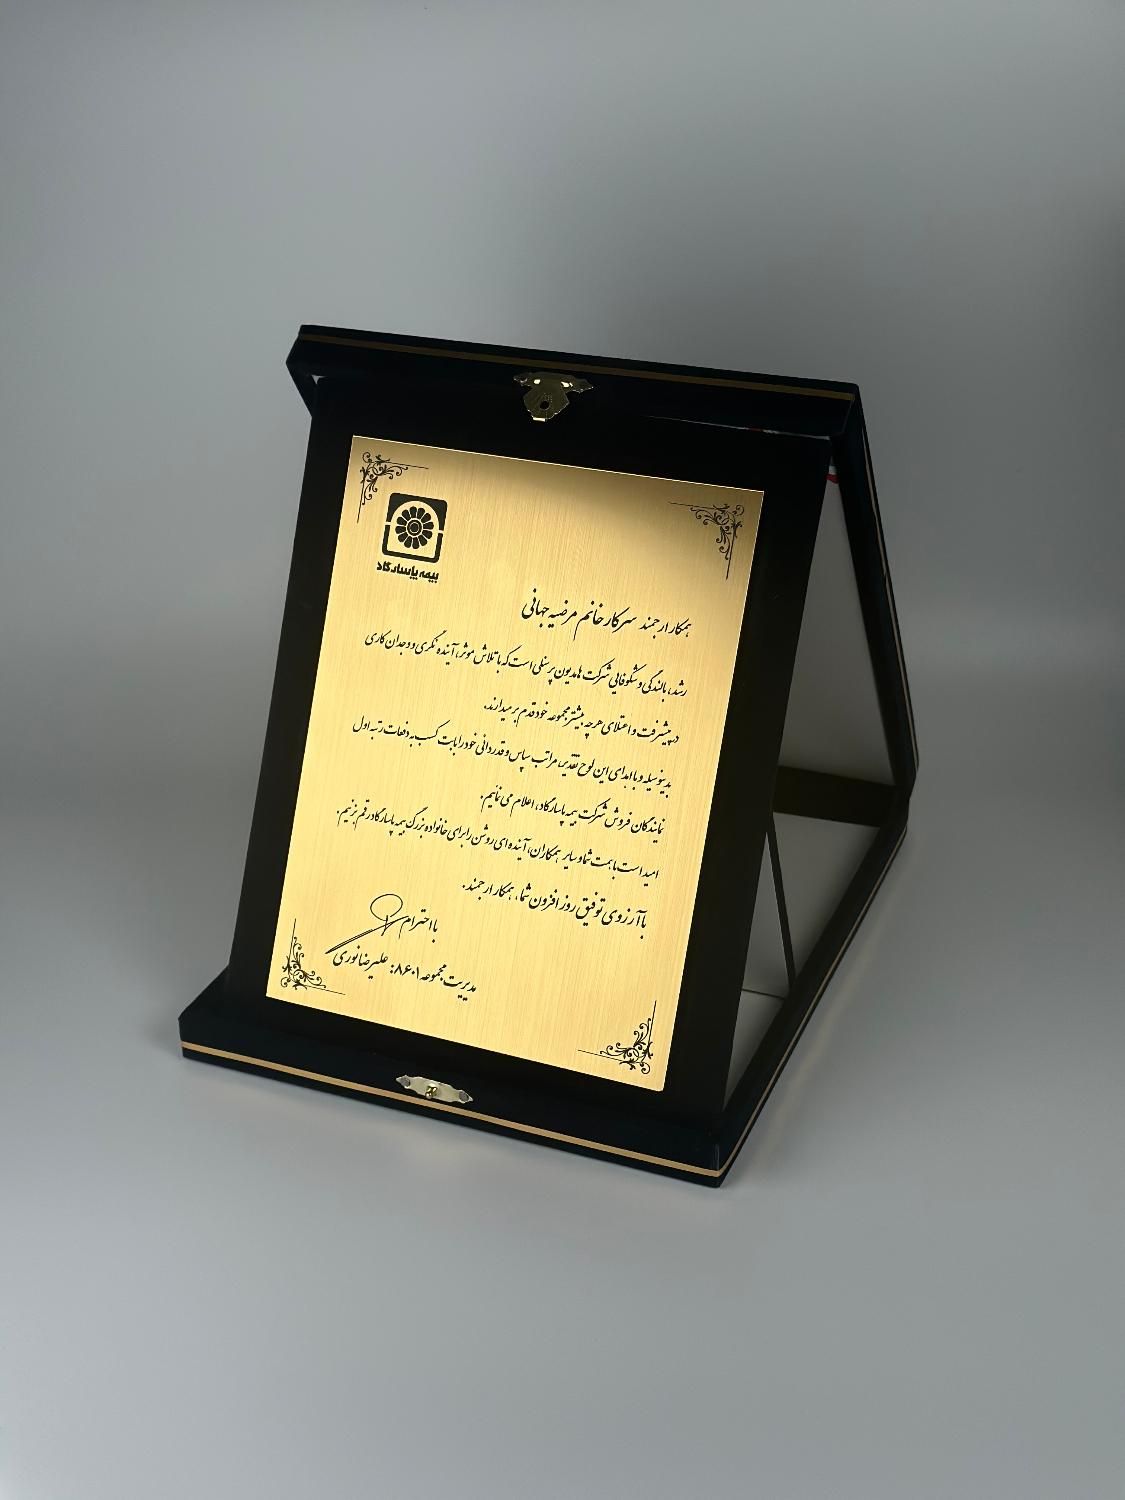 بیمه پاسارگاد
همکار ارجمند سرکار خانم مرضیه جهانی
رشد، بالندگی و شکوفایی شرکت ها مدیون پرسنلی است که با تلاش موثر، آینده نگری و وجدان کاری
در پیشرفت و اعتلای هرچه بیشتر مجموعه خود قدم بر میدارند.
بدینوسیله و با اهدای این لوح تقدیر، مراتب سپاس و قدردانی خود را بابت کسب به دفعات رتبه اول
نمایندگان فروش شرکت بیمه پاسارگاد، اعلام می نماییم.
امید است با همت شما و سایر همکاران، آینده ای روشن را برای خانواده بزرگ بیمه پاسارگاد رقم بزنیم.
با آرزوی توفیق روز افزون شما، همکار ارجمند.
با احترام
مدیریت مجموعه ۸۶۰۱: علیرضا نوری